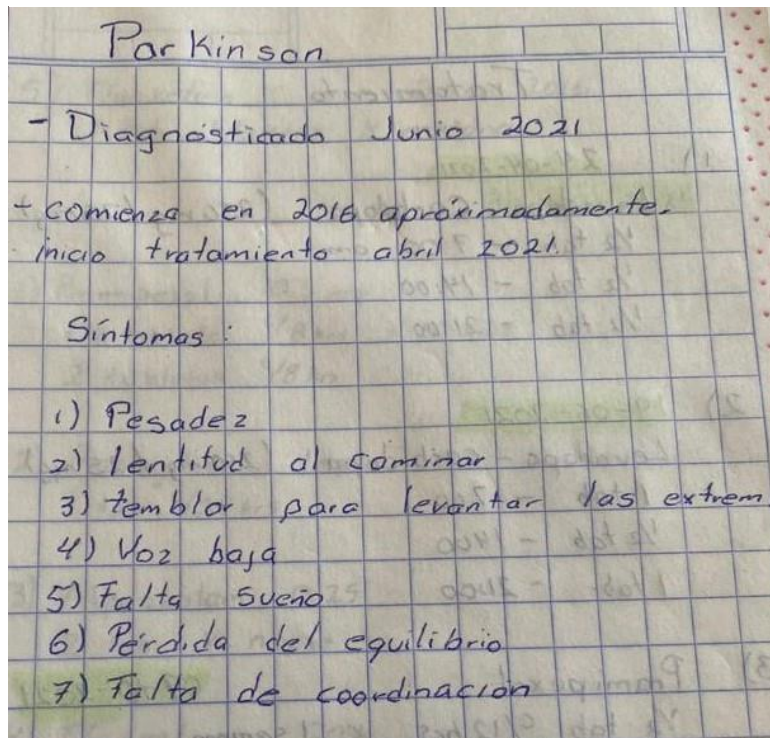 Parkinson
- Diagnosticado Junio 2021
- comienza en 2016 aproximadamente.
inicio tratamiento abril 2021.
Síntomas:
1) Pesadez
2) lentitud al caminar
3) temblor para levantar las extrem
4) Voz baja
5) Falta sueño
6) Pérdida del equilibrio
7) Falta de coordinación